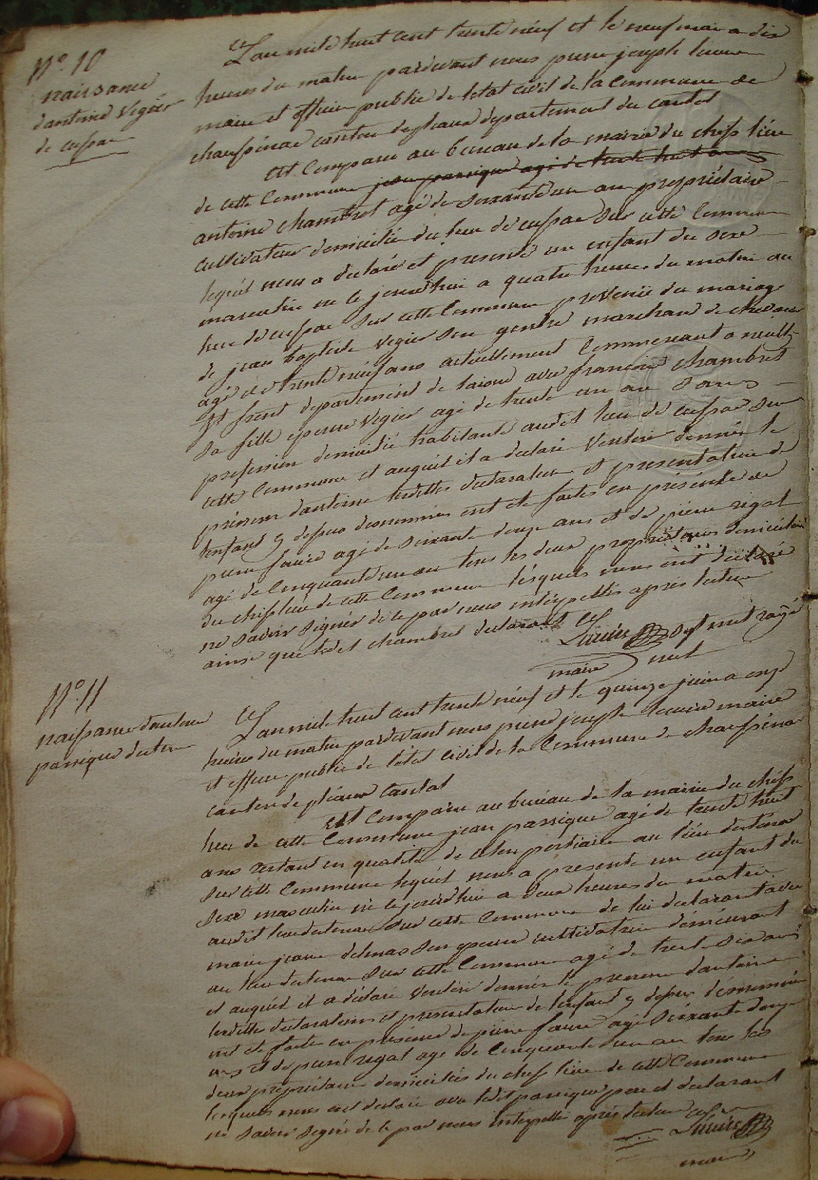 N° 10
naissance
dantoine Vigier
de cussac
L'an mil huit cent trente neuf et le neuf mai a dix
heures du matin pardevant nous pierre joseph
maire et officier public de letat civil de la Commune de
chaussenac canton de pleaux departement du cantal
Est Comparu au bureau de la mairie du chef lieu
de cette Commune jean passique agé de trente huit ans
antoine chambret agé de Soixante un an propriétaire
cultivateur domicilié du lieu de cussac Sur cette Commune
lequel nous a declaré et presenté un enfant du sexe
masculin né le jourdhui a quatre heures du matin au
lieu de cussac Sur cette Commune provenu du mariage
de jean baptiste Vigier Son gendre marchand de
agé de trente neuf ans actuellement Commercant a
departement de avec francoise chambret
Sa fille epouse Vigier agé de trente un an Sans
profession domiciliée habitante audit lieu de cussac Sur
cette Commune et auquel il a declaré Vouloir donner le
prénom dantoine lesdittes declaration et presentation de
lenfant y dessus denommé ont eté faites en presence de
pierre faure agé de Soixante douze ans et de pierre rigal
agé de Cinquante un an tous les deux propriétaires domiciliés
du chef lieu de cette Commune lesquels nous ont declaré
ne Savoir Signer de ce par nous interpellés après lecture
ainsi que ledit chambret declarant
Sept mots rayés
maire nuls
N° 11
naissance dantoine
passique
L'an mil huit cent trente neuf et le quinze juin a onze
heures du matin pardevant nous pierre joseph maire
et officier public de létat civil de la Commune de chaussenac
canton de pleaux Cantal
Est Comparu au bureau de la mairie du chef
lieu de cette Commune jean passique agé de trente huit
ans restant en qualité de au lieu
Sur cette Commune lequel nous a presenté un enfant du
Sexe masculin né le jourdhui a deux heures du matin
audit lieu Sur cette Commune de lui declarant avec
marie jeanne delmas Son epouse cultivatrice demeurant
au lieu Sur cette Commune agé de trente Six ans
et auquel il a déclaré Vouloir donner le prenom dantoine
lesdittes declarations et presentation de lenfant y dessus denommé
ont eté faites en presence de pierre faure agé Soixante douze
ans et de pierre rigal agé de Cinquante un an tous les
deux propriétaires domiciliés du chef lieu de cette Commune
lesquels nous ont declaré avec ledit passique pere et declarant
ne Savoir Signer de ce par nous interpellé après lecture
maire